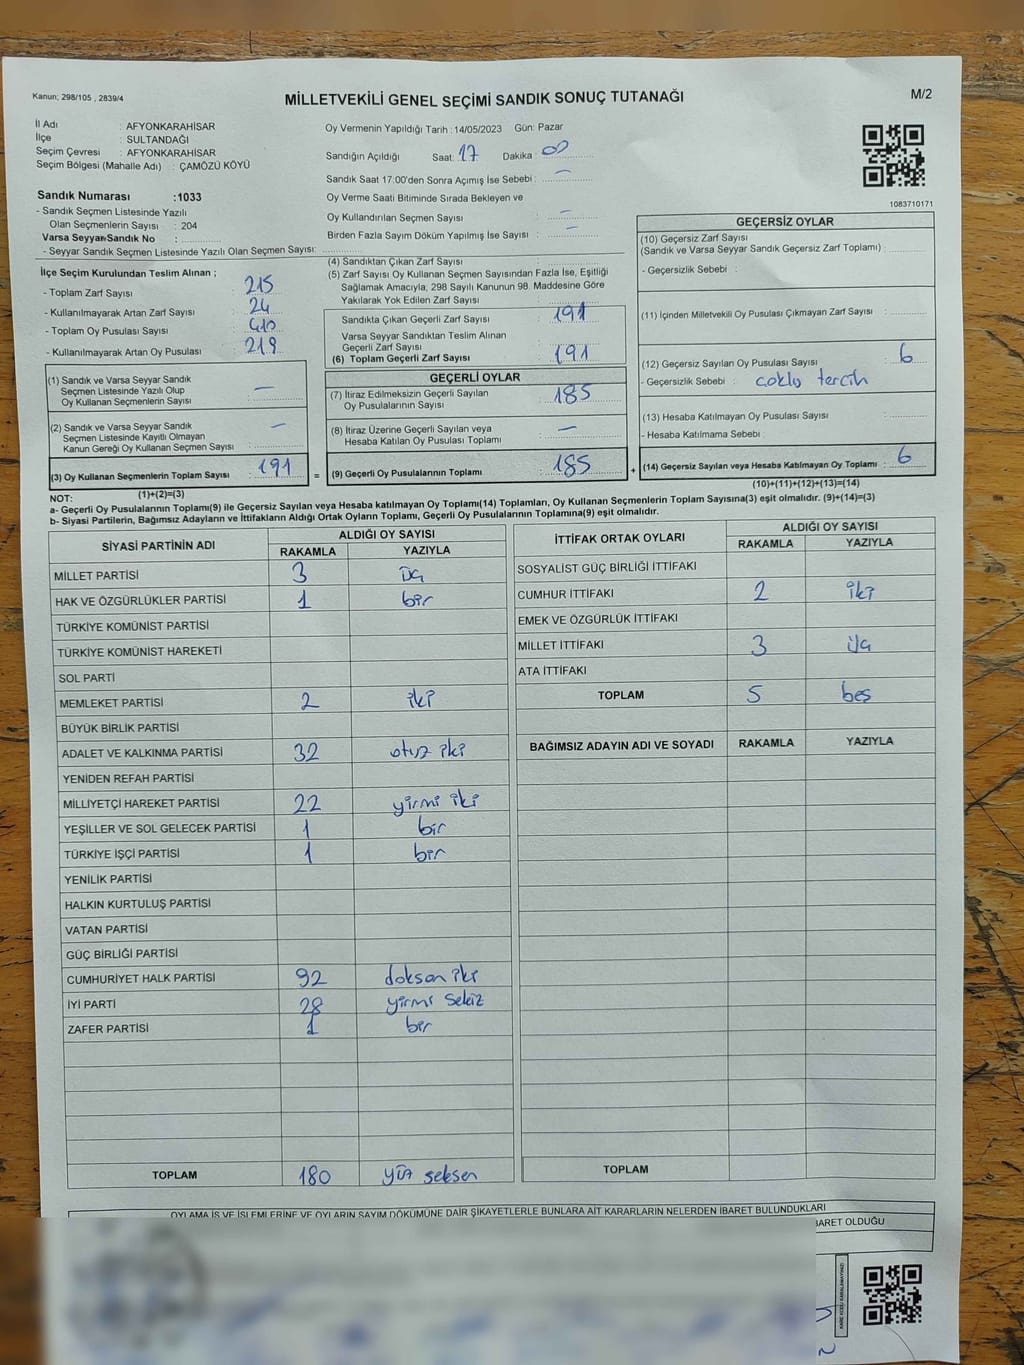 Kanun; 298/105 , 2839/4
MİLLETVEKİLİ GENEL SEÇİMİ SANDIK SONUÇ TUTANAĞI
M/2
İl Adı : AFYONKARAHİSAR
İlçe : SULTANDAĞI
Seçim Çevresi : AFYONKARAHİSAR
Seçim Bölgesi (Mahalle Adı) : ÇAMÖZÜ KÖYÜ
Sandık Numarası :1033
- Sandık Seçmen Listesinde Yazılı
Olan Seçmenlerin Sayısı : 204
Varsa Seyyar Sandık No :
- Seyyar Sandık Seçmen Listesinde Yazılı Olan Seçmen Sayısı:
Oy Vermenin Yapıldığı Tarih : 14/05/2023 Gün: Pazar
Sandığın Açıldığı Saat: 17 Dakika : 00
Sandık Saat 17.00'den Sonra Açımış İse Sebebi : —
Oy Verme Saati Bitiminde Sırada Bekleyen ve
Oy Kullandırılan Seçmen Sayısı : —
Birden Fazla Sayım Döküm Yapılmış İse Sayısı : —
1083710171
İlçe Seçim Kurulundan Teslim Alınan ;
- Toplam Zarf Sayısı : 215
- Kullanılmayarak Artan Zarf Sayısı : 24
- Toplam Oy Pusulası Sayısı : 410
- Kullanılmayarak Artan Oy Pusulası : 219
(1) Sandık ve Varsa Seyyar Sandık
Seçmen Listesinde Yazılı Olup
Oy Kullanan Seçmenlerin Sayısı : —
(2) Sandık ve Varsa Seyyar Sandık
Seçmen Listesinde Kayıtlı Olmayan
Kanun Gereği Oy Kullanan Seçmen Sayısı : —
(3) Oy Kullanan Seçmenlerin Toplam Sayısı : 191
(1)+(2)=(3)
(4) Sandıktan Çıkan Zarf Sayısı :
(5) Zarf Sayısı Oy Kullanan Seçmen Sayısından Fazla İse, Eşitliği
Sağlamak Amacıyla, 298 Sayılı Kanunun 98. Maddesine Göre
Yakılarak Yok Edilen Zarf Sayısı :
Sandıkta Çıkan Geçerli Zarf Sayısı : 191
Varsa Seyyar Sandıktan Teslim Alınan
Geçerli Zarf Sayısı :
(6) Toplam Geçerli Zarf Sayısı : 191
GEÇERLİ OYLAR
(7) İtiraz Edilmeksizin Geçerli Sayılan
Oy Pusulalarının Sayısı : 185
(8) İtiraz Üzerine Geçerli Sayılan veya
Hesaba Katılan Oy Pusulası Toplamı : —
= (9) Geçerli Oy Pusulalarının Toplamı : 185 +
GEÇERSİZ OYLAR
(10) Geçersiz Zarf Sayısı
(Sandık ve Varsa Seyyar Sandık Geçersiz Zarf Toplamı) :
- Geçersizlik Sebebi :
(11) İçinden Milletvekili Oy Pusulası Çıkmayan Zarf Sayısı :
(12) Geçersiz Sayılan Oy Pusulası Sayısı : 6
- Geçersizlik Sebebi : coklu tercih
(13) Hesaba Katılmayan Oy Pusulası Sayısı :
- Hesaba Katılmama Sebebi :
(14) Geçersiz Sayılan veya Hesaba Katılmayan Oy Toplamı : 6
(10)+(11)+(12)+(13)=(14)
NOT:
a- Geçerli Oy Pusulalarının Toplamı(9) ile Geçersiz Sayılan veya Hesaba katılmayan Oy Toplamı(14) Toplamları, Oy Kullanan Seçmenlerin Toplam Sayısına(3) eşit olmalıdır. (9)+(14)=(3)
b- Siyasi Partilerin, Bağımsız Adayların ve İttifakların Aldığı Ortak Oyların Toplamı, Geçerli Oy Pusulalarının Toplamına(9) eşit olmalıdır.
SİYASİ PARTİNİN ADI
ALDIĞI OY SAYISI
RAKAMLA YAZIYLA
MİLLET PARTİSİ 3 üç
HAK VE ÖZGÜRLÜKLER PARTİSİ 1 bir
TÜRKİYE KOMÜNİST PARTİSİ
TÜRKİYE KOMÜNİST HAREKETİ
SOL PARTİ
MEMLEKET PARTİSİ 2 iki
BÜYÜK BİRLİK PARTİSİ
ADALET VE KALKINMA PARTİSİ 32 otuz iki
YENİDEN REFAH PARTİSİ
MİLLİYETÇİ HAREKET PARTİSİ 22 yirmi iki
YEŞİLLER VE SOL GELECEK PARTİSİ 1 bir
TÜRKİYE İŞÇİ PARTİSİ 1 bir
YENİLİK PARTİSİ
HALKIN KURTULUŞ PARTİSİ
VATAN PARTİSİ
GÜÇ BİRLİĞİ PARTİSİ
CUMHURİYET HALK PARTİSİ 92 doksan iki
İYİ PARTİ 28 yirmi sekiz
ZAFER PARTİSİ 1 bir
TOPLAM 180 yüz seksen
İTTİFAK ORTAK OYLARI
ALDIĞI OY SAYISI
RAKAMLA YAZIYLA
SOSYALİST GÜÇ BİRLİĞİ İTTİFAKI
CUMHUR İTTİFAKI 2 iki
EMEK VE ÖZGÜRLÜK İTTİFAKI
MİLLET İTTİFAKI 3 üç
ATA İTTİFAKI
TOPLAM 5 beş
BAĞIMSIZ ADAYIN ADI VE SOYADI RAKAMLA YAZIYLA
TOPLAM
OYLAMA İŞ VE İŞLEMLERİNE VE OYLARIN SAYIM DÖKÜMÜNE DAİR ŞİKAYETLERLE BUNLARA AİT KARARLARIN NELERDEN İBARET BULUNDUKLARI
BARET OLDUĞU